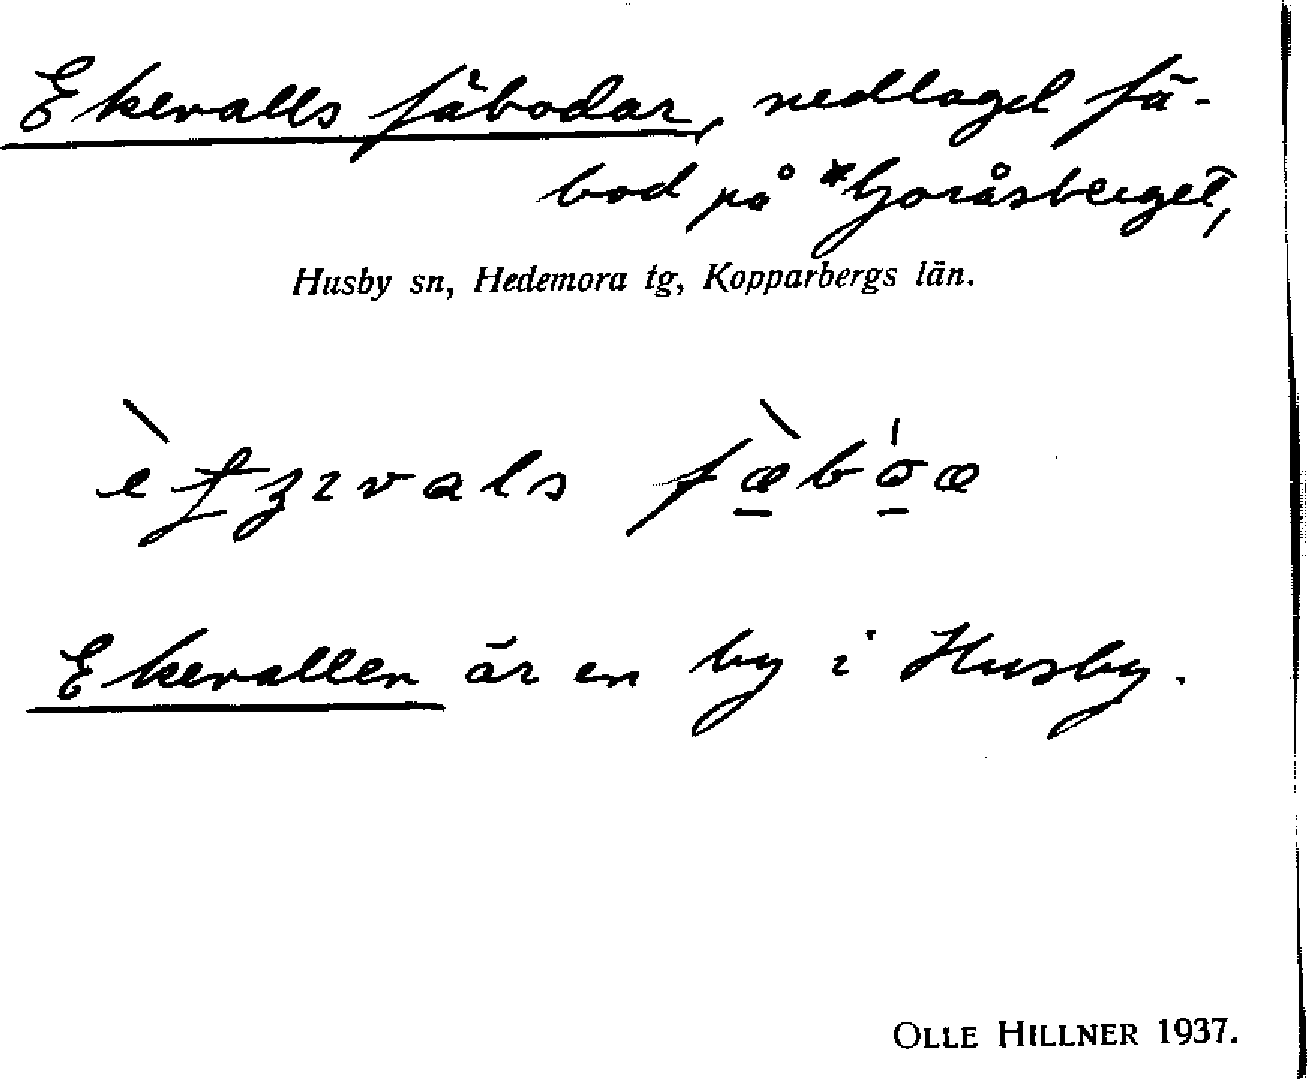 Ekevalls fäbodar, nedlagd fä-
bod på *Goråsberget,
Husby sn, Hedemora tg, Kopparbergs län.
Ekevallen är en by i Husby.
OLLE HILLNER 1937.